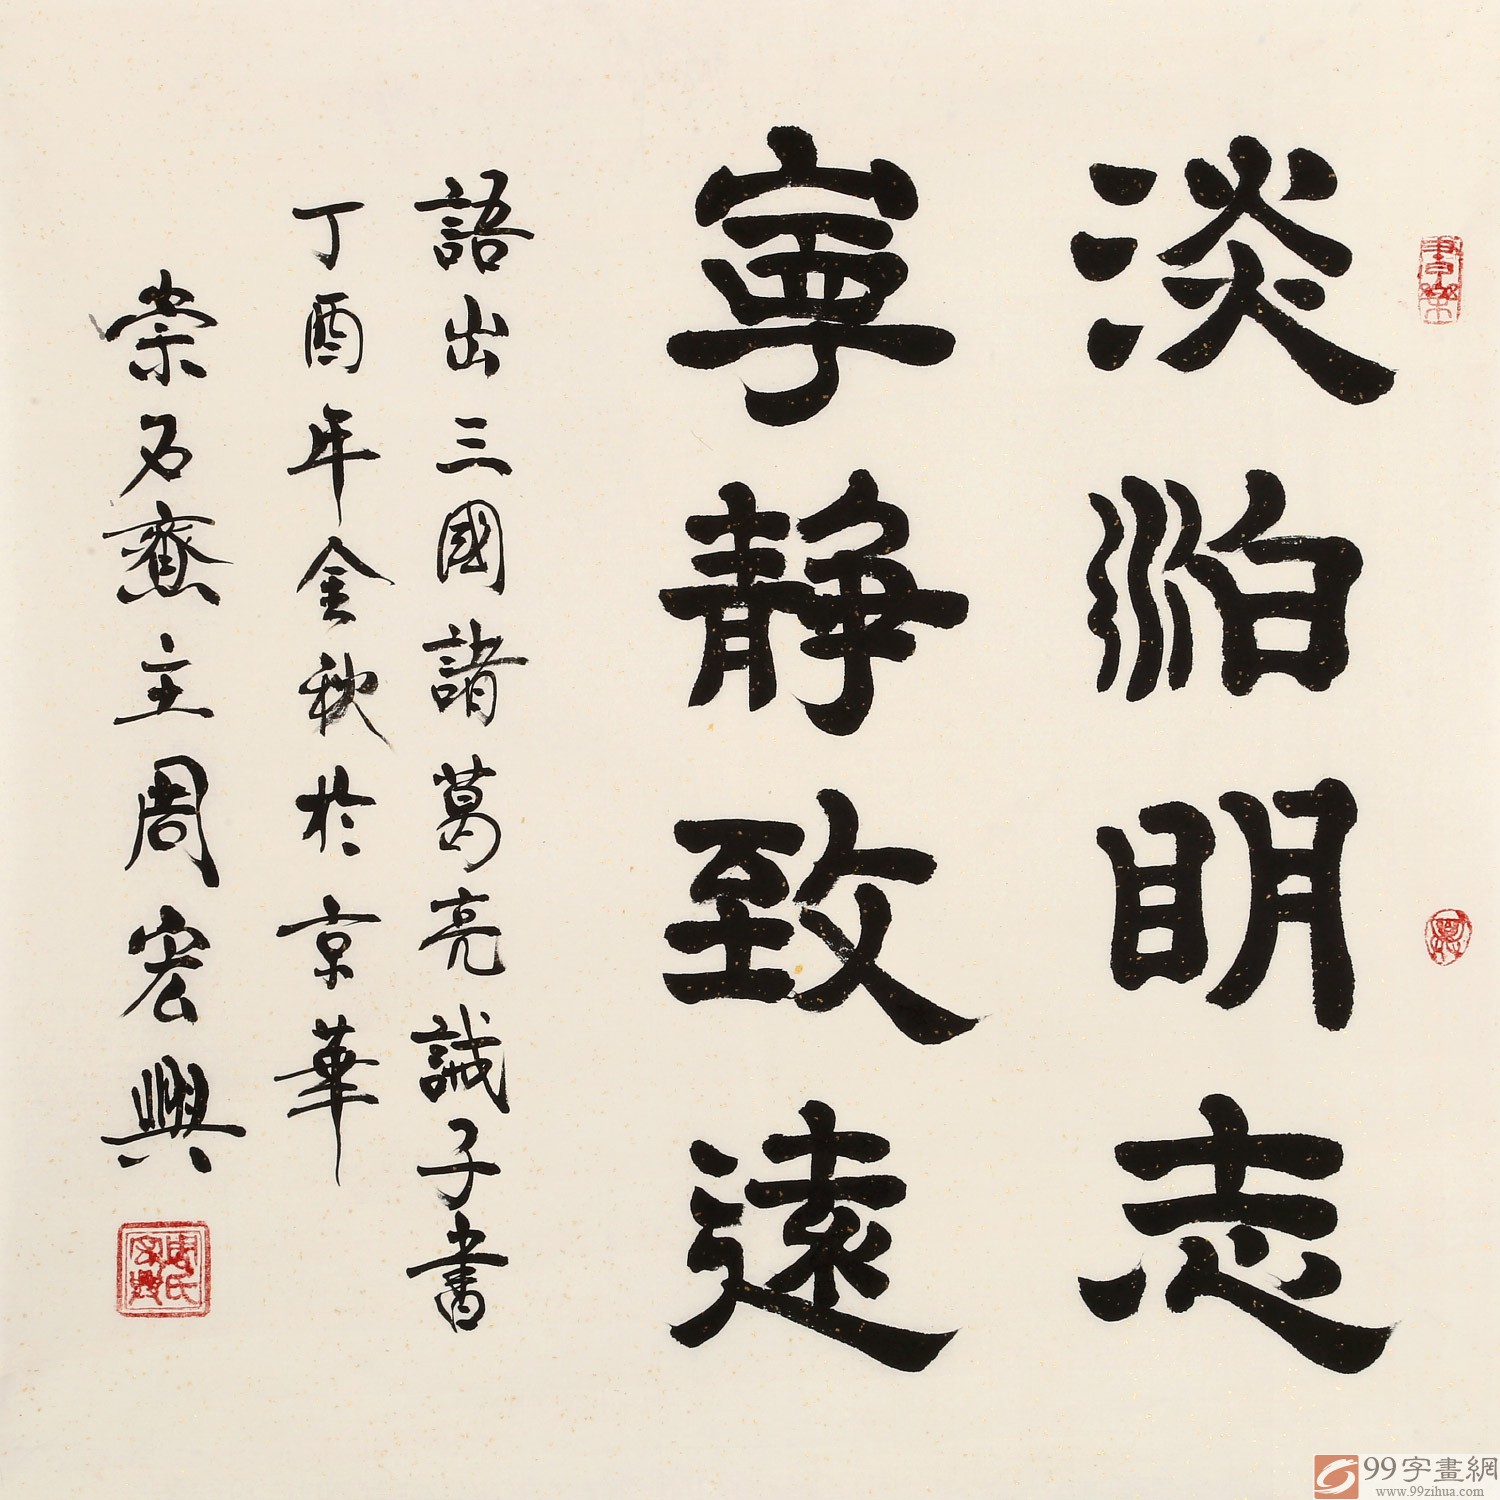 淡泊明志
寧靜致遠
語出三國諸葛亮誡子書
丁酉年金秋於京華
崇石齋主周宏興
99字畫網
www.99zihua.com